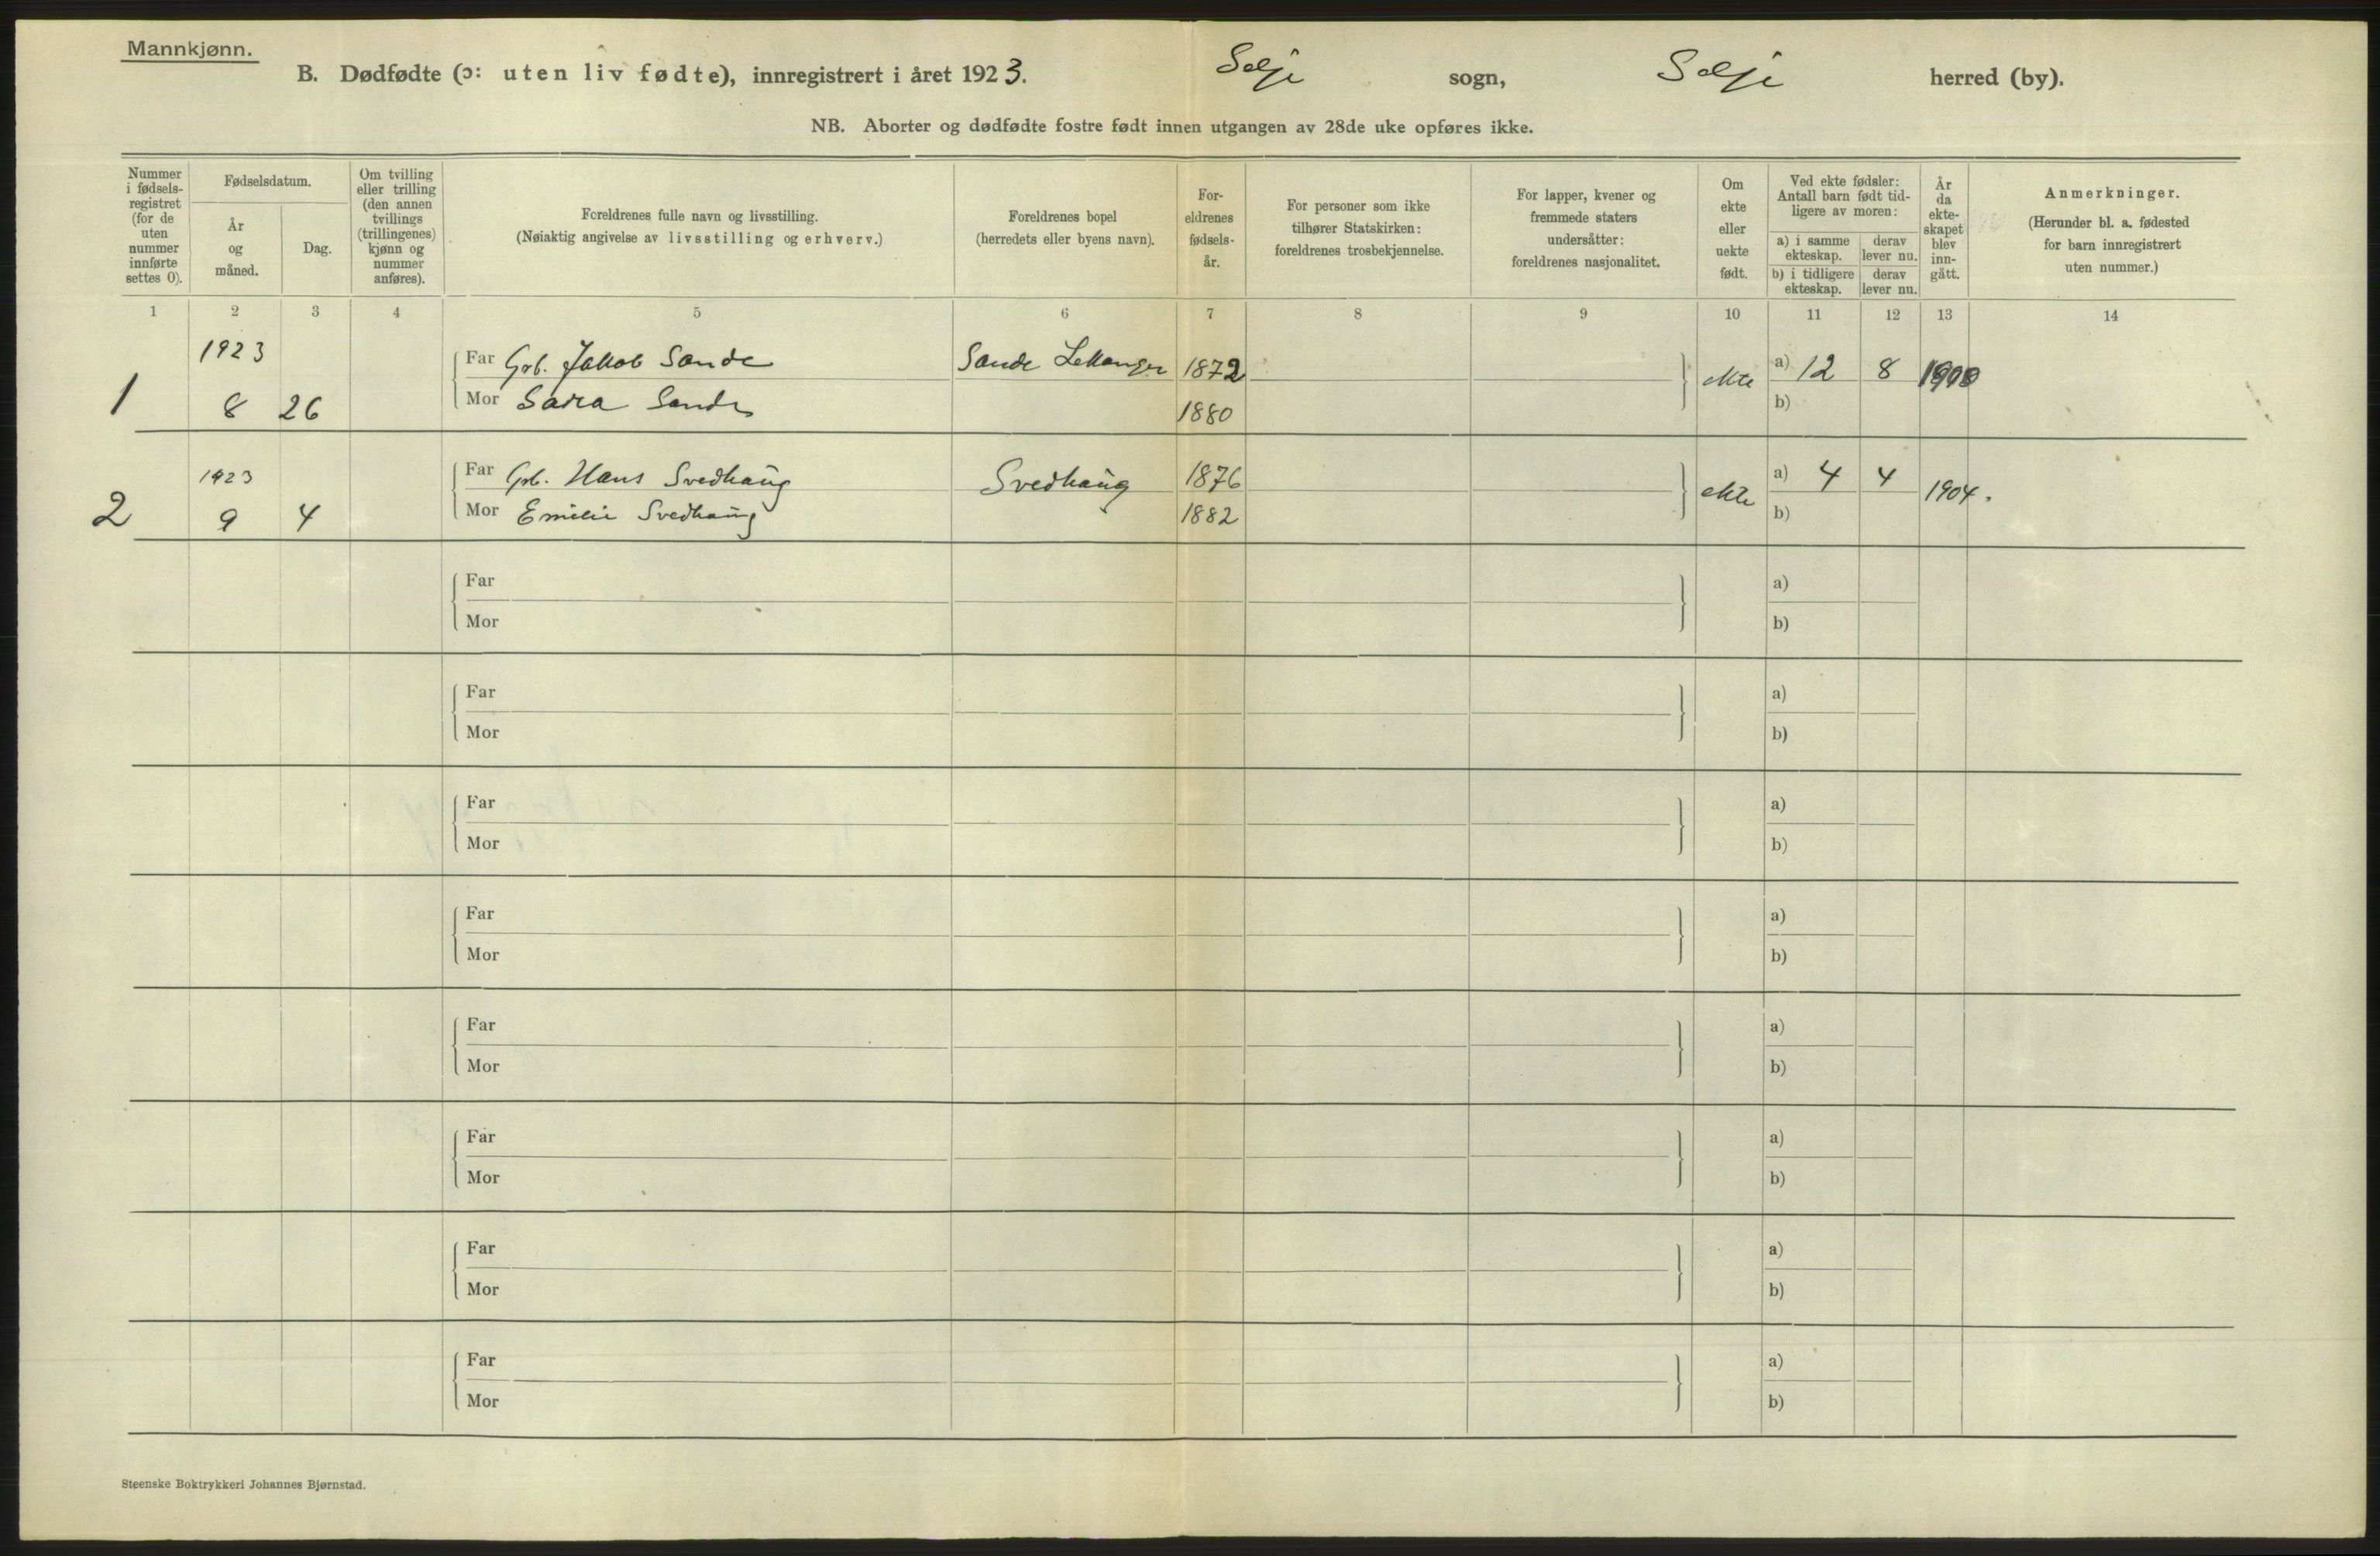 Mannkjønn.
B. Dødfødte (ɔ: uten liv fødte), innregistrert i året 1923. Selje sogn, Selje herred (by).
NB. Aborter og dødfødte fostre født innen utgangen av 28de uke opføres ikke.
Nummer
i fødsels-
registret
(for de
uten
nummer
innførte
settes 0).
Fødselsdatum.
År
og
måned.
Dag.
Om tvilling
eller trilling
(den annen
tvillings
(trillingenes)
kjønn og
nummer
anføres).
Foreldrenes fulle navn og livsstilling.
(Nøiaktig angivelse av livsstilling og erhverv.)
Foreldrenes bopel
(herredets eller byens navn).
For-
eldrenes
fødsels-
år.
For personer som ikke
tilhører Statskirken:
foreldrenes trosbekjennelse.
For lapper, kvener og
fremmede staters
undersåtter:
foreldrenes nasjonalitet.
Om
ekte
eller
uekte
født.
Ved ekte fødsler:
Antall barn født tid-
ligere av moren:
a) i samme
ekteskap.
derav
lever nu.
b) i tidligere
ekteskap.
derav
lever nu.
År
da
ekte-
skapet
blev
inn-
gått.
Anmerkninger.
(Herunder bl. a. fødested
for barn innregistrert
uten nummer.)
1 2 3 4 5 6 7 8 9 10 11 12 13 14
1923
Far Grb. Jakob Sande Sande Lekanger 1872 ekte a) 12 8 1900
1 8 26 Mor Sara Sande 1880 b)
1923 Far Grb. Hans Svedhaug Svedhaug 1876 ekte a) 4 4 1904.
2 9 4 Mor Emilie Svedhaug 1882 b)
Far a)
Mor b)
Far a)
Mor b)
Far a)
Mor b)
Far a)
Mor b)
Far a)
Mor b)
Far a)
Mor b)
Far a)
Mor b)
Far a)
Mor b)
Steenske Boktrykkeri Johannes Bjørnstad.